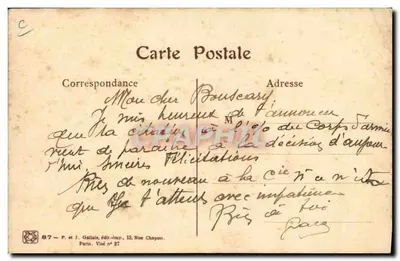 Carte Postale
Correspondance
Adresse
Mon cher Bouscary
M
Je suis heureux de t'annoncer
que ta citation à l'o/o du Corps d'armée
vient de paraître à la décision d'aujour
d'hui Sincères félicitations
Rien de nouveau à la cie
que je t'attends avec impatience
Bien à toi
87 — P. et J. Gallais, édit.-imp., 12, Rue Chapon.
Paris. Visé n° 87